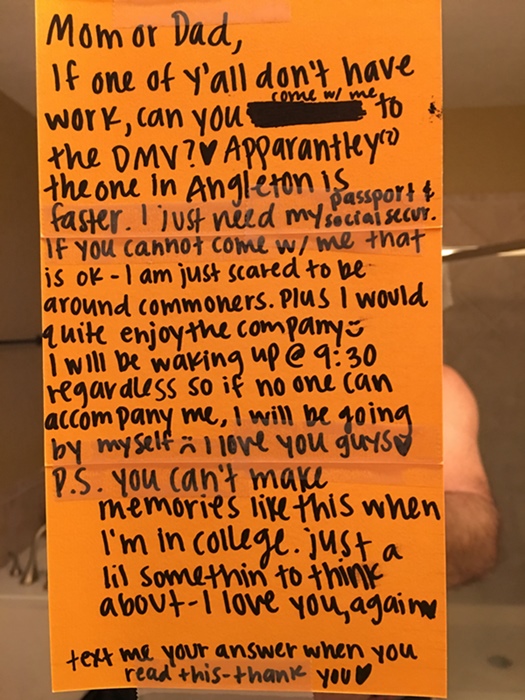 Mom or Dad,
If one of y'all don't have
come w/ me
work, can you to
the DMV?♥ Apparantley(?)
the one in Angleton is
faster. I just need my passport &
social secur.
If you cannot come w/ me that
is ok - I am just scared to be
around commoners. Plus I would
quite enjoy the company☺
I will be waking up @ 9:30
regardless so if no one can
accompany me, I will be going
by myself ☹ I love you guys♥
P.S. you can't make
memories like this when
I'm in college. just a
lil somethin to think
about - I love you, again
text me your answer when you
read this - thank you♥